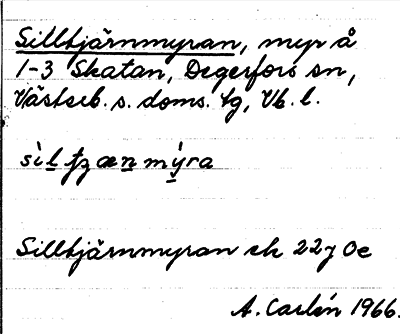 Silltjärnmyran, myr å
1-3 Skatan, Degerfors sn,
Västerb. s. doms. tg, Vb. l.
Silltjärnmyran ek 22j Oe
A. Carlén 1966.